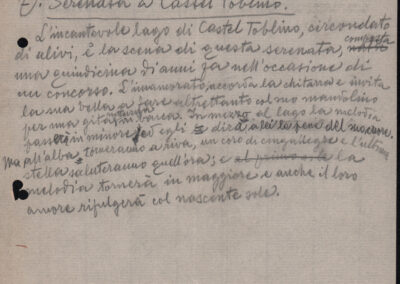 Serenata a Castel Toblino.
L'incantevole lago di Castel Toblino, circondato
di ulivi, è la scena di questa serenata, composta
una quindicina d'anni fa nell'occasione di
un concorso. L'innamorato, accorda la chitarra e invita
la sua bella a fare altrettanto col suo mandolino
per una gita in barca. In mezzo al lago la melodia
passerà in minore, ed egli dirà del
Ma all'alba torneranno a riva, un coro di e l'ultima
stella saluteranno quell'ora; e la
melodia tornerà in maggiore e anche il loro
amore rifulgerà col nascente sole.